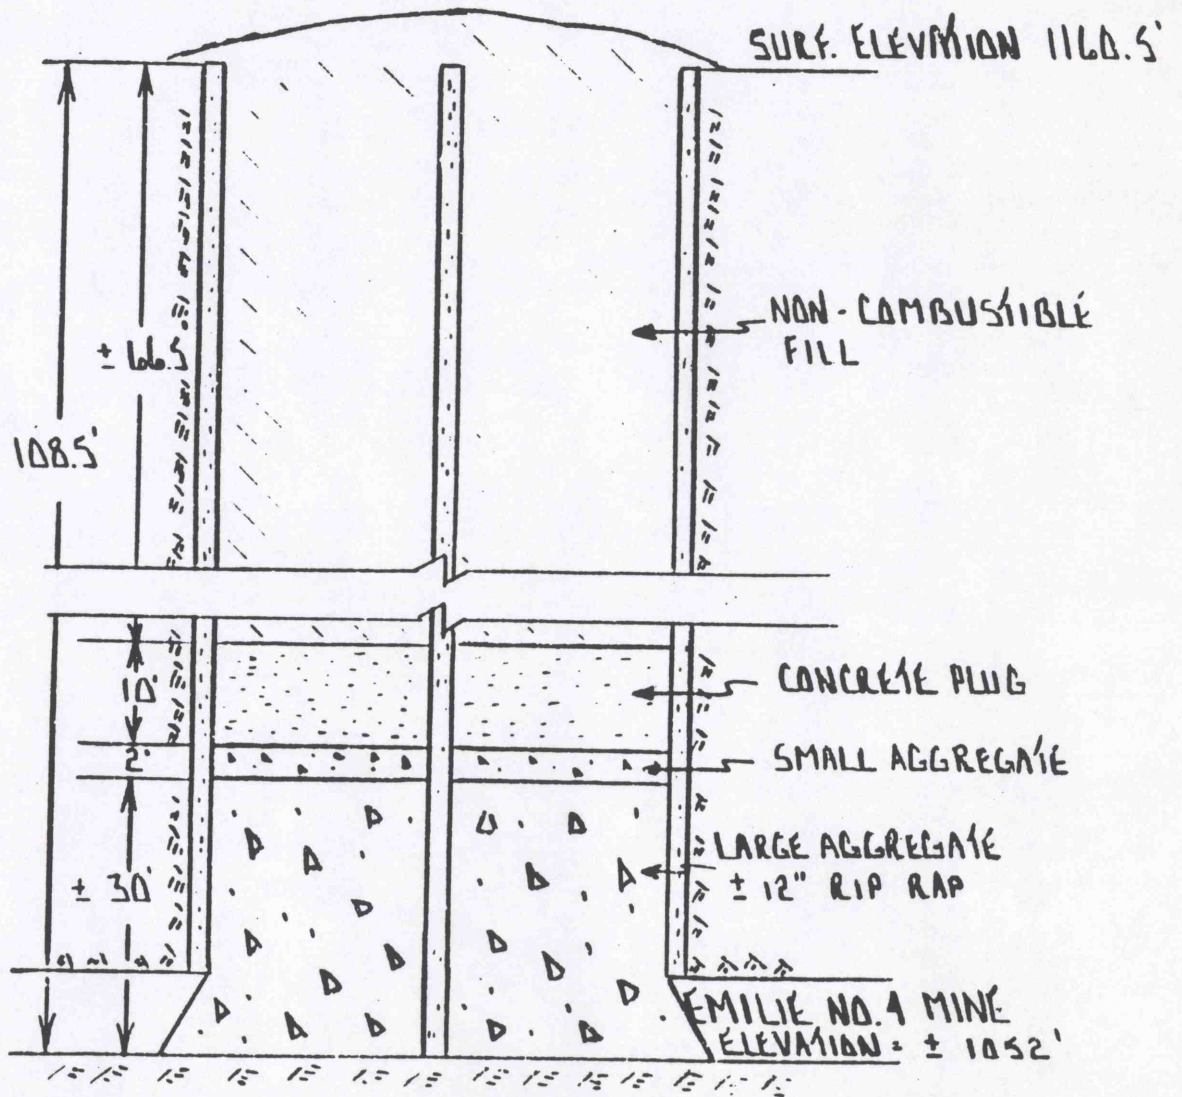 SURF. ELEVATION 1160.5'
± 66.5
NON-COMBUSTIBLE
FILL
108.5'
10'
CONCRETE PLUG
2'
SMALL AGGREGATE
LARGE AGGREGATE
± 12" RIP RAP
± 30'
EMILIE NO. 4 MINE
ELEVATION = ± 1052'